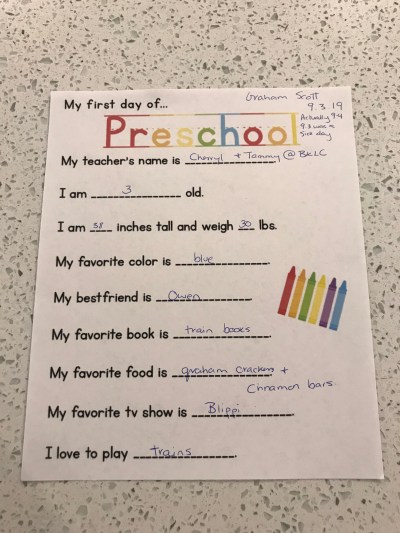 My first day of...
Graham Scott
9.3.19
Actually 9.4
9.3 was a
sick day
Preschool
My teacher's name is Cherryl + Tammy @ BKLC
I am 3 old.
I am 38 inches tall and weigh 30 lbs.
My favorite color is blue.
My bestfriend is Owen.
My favorite book is train books.
My favorite food is graham crackers +
Cinnamon bars.
My favorite tv show is Blippi.
I love to play trains.